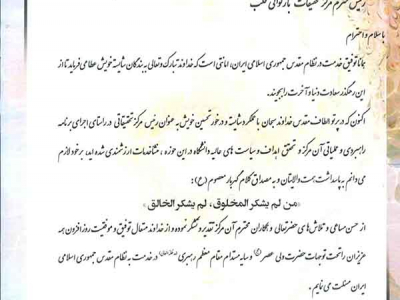 رئیس محترم مرکز تحقیقات بازتوانی قلب
با سلام و احترام
همانا توفیق خدمت در نظام مقدس جمهوری اسلامی ایران، امانتی است که خداوند تبارک و تعالی به بندگان شایسته خویش عطا می فرماید تا از
این رهگذر سعادت دنیا و آخرت را بجویند.
اکنون که در پرتو الطاف مقدس خداوند سبحان با عملکرد شایسته و درخور تحسین خویش به عنوان رئیس مرکز تحقیقاتی در راستای اجرای برنامه
راهبردی و عملیاتی آن مرکز و تحقق اهداف و سیاست های عالیه دانشگاه در این حوزه، منشاء خدمات ارزشمندی شده اید، بر خود لازم
می دانم به پاسداشت همت والایتان و به مصداق کلام گهربار معصوم (ع):
«من لم یشکر المخلوق، لم یشکر الخالق»
از حسن مساعی و تلاش های حضرتعالی و همکاران محترم آن مرکز تقدیر و تشکر نموده و از خداوند متعال توفیق و موفقیت روزافزون همه
عزیزان را تحت توجهات حضرت ولی عصر (عج) و سایه مستدام مقام معظم رهبری در خدمت به نظام مقدس جمهوری اسلامی
ایران مسئلت می نمایم.